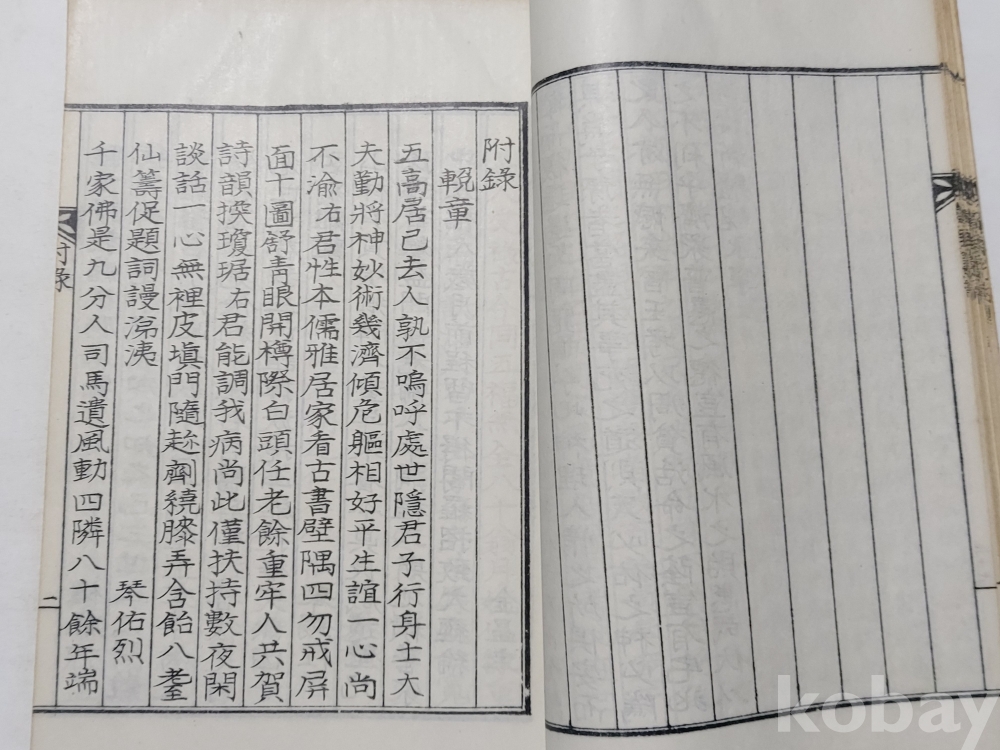 附錄
輓章
五高居已去人孰不嗚呼處世隱君子行身士大
夫勤將神妙術幾濟傾危軀相好平生誼一心尚
不渝右君性本儒雅居家看古書壁隅四勿戒屏
面十圖舒靑眼開樽際白頭任老餘重牢人共賀
詩韻揬瓊琚右君能調我病尚此僅扶持數夜閑
談話一心無裡皮塡門隨趁劑繞膝弄含飴八耋
仙籌促題詞謾涕洟
琴佑烈
千家佛是九分人司馬遺風動四隣八十餘年端
附錄
二
kobay